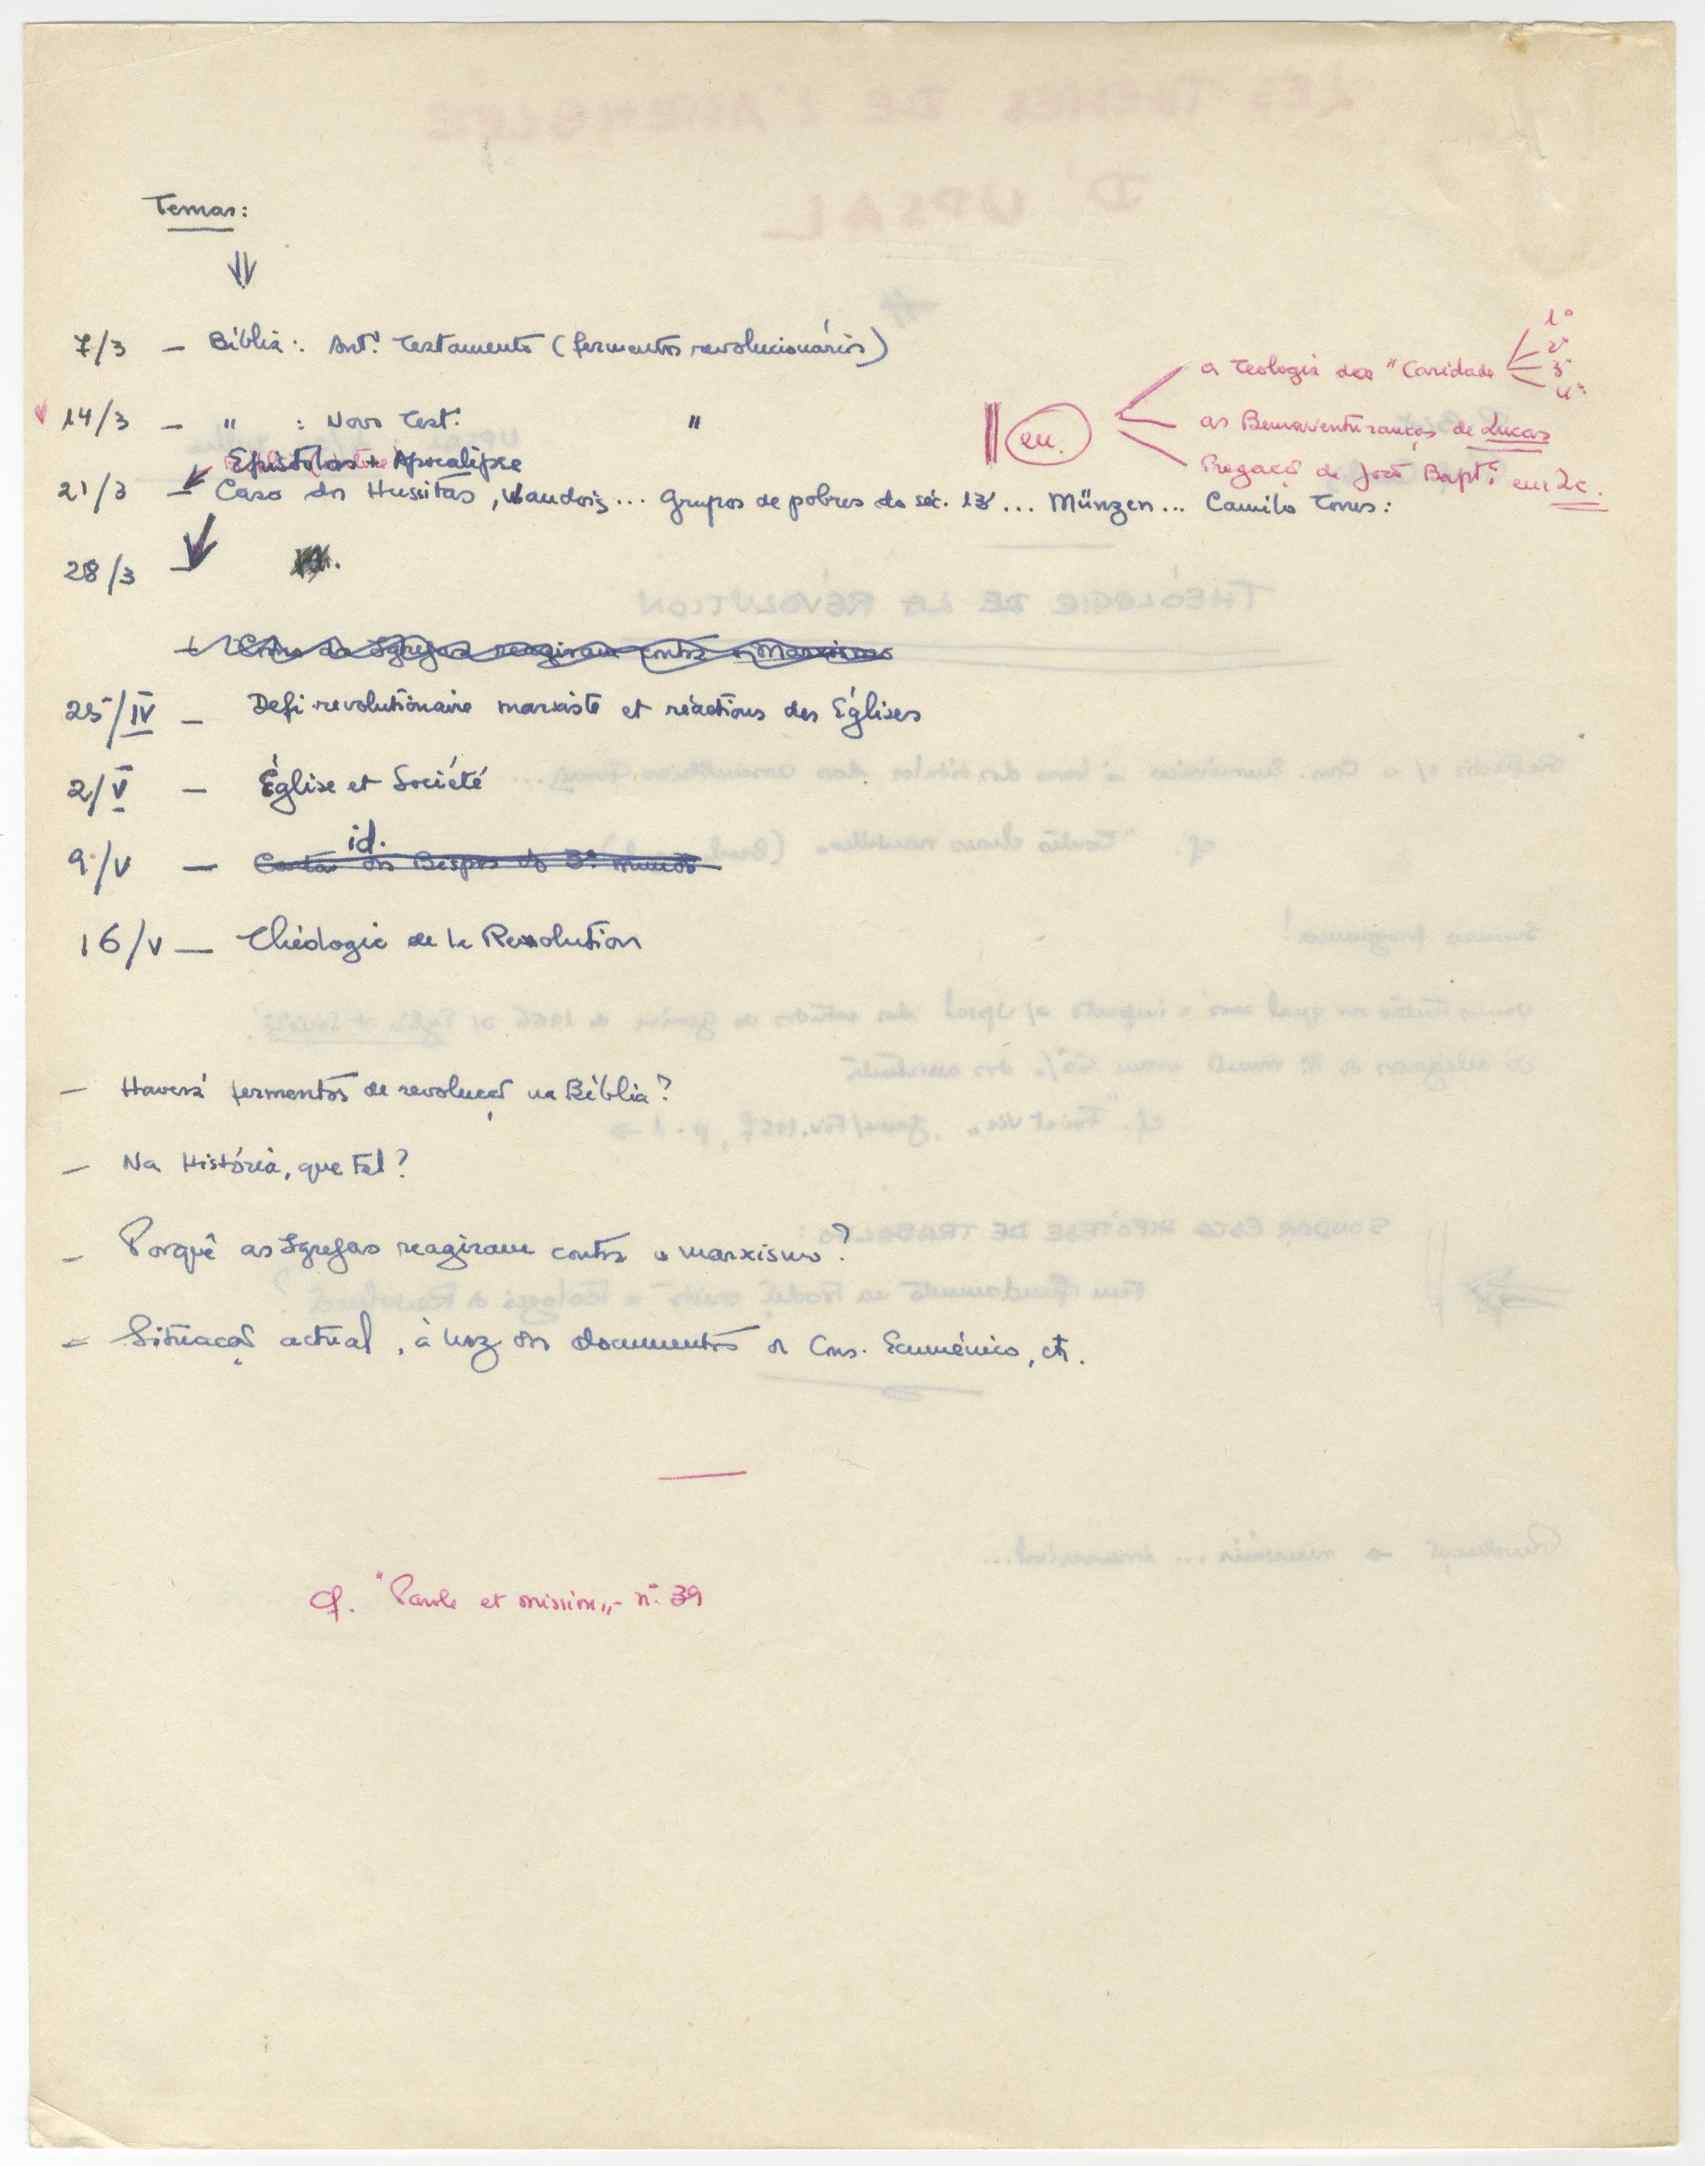 Temas:
7/3 — Bíblia: Antº Testamento (fermentos revolucionários)
1º
2º
3º
4º
a Teologia dos "Caridade
14/3 — " : Novo Test. "
eu.
as Bemaventuranças de Lucas
Epístolas + Apocalipse
Pregação de João Baptª em Lc.
21/3 — Caso dos Hussitas, Vaudois... grupos de pobres do séc. 13... Münzen... Camilo Torres:
28/3 —
Como as Igrejas reagiram contra o Marxismo
25/IV — Defi revolutionaire marxiste et réactions des Églises
2/V — Église et Société
id.
9/V — Cartas dos Bispos do 3º mundo
16/V — Théologie de la Revolution
— Haverá fermentos de revolução na Bíblia?
— Na História, que tal?
— Porquê as Igrejas reagiram contra o marxismo?
— Situação actual, à luz dos documentos do Cons. Ecuménico, etc.
Cf. "Parole et mission" - nº 39